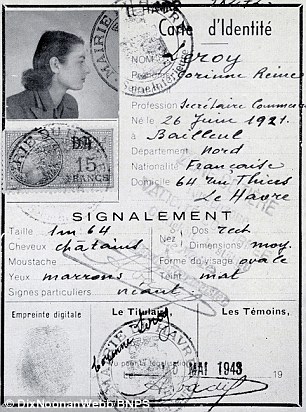 Carte d'Identité
NOM Leroy
Corinne Reine
Profession Secrétaire Commerc
Né le 26 Juin 1921.
à Bailleul
Département Nord
Nationalité Française
Domicile 64 rue Thiers
Le Havre
MAIRIE DU HAVRE
15
FRANCS
SIGNALEMENT
Taille 1m 64
Cheveux chatains
Moustache
Yeux marrons
Signes particuliers néant
Nez
Dos rect
Dimensions moy.
Forme du visage ovale
Teint mat
Empreinte digitale
Le Titulaire,
Les Témoins,
Corinne Leroy
MAI 1943
19
© DixNoonanWebb/BNPS